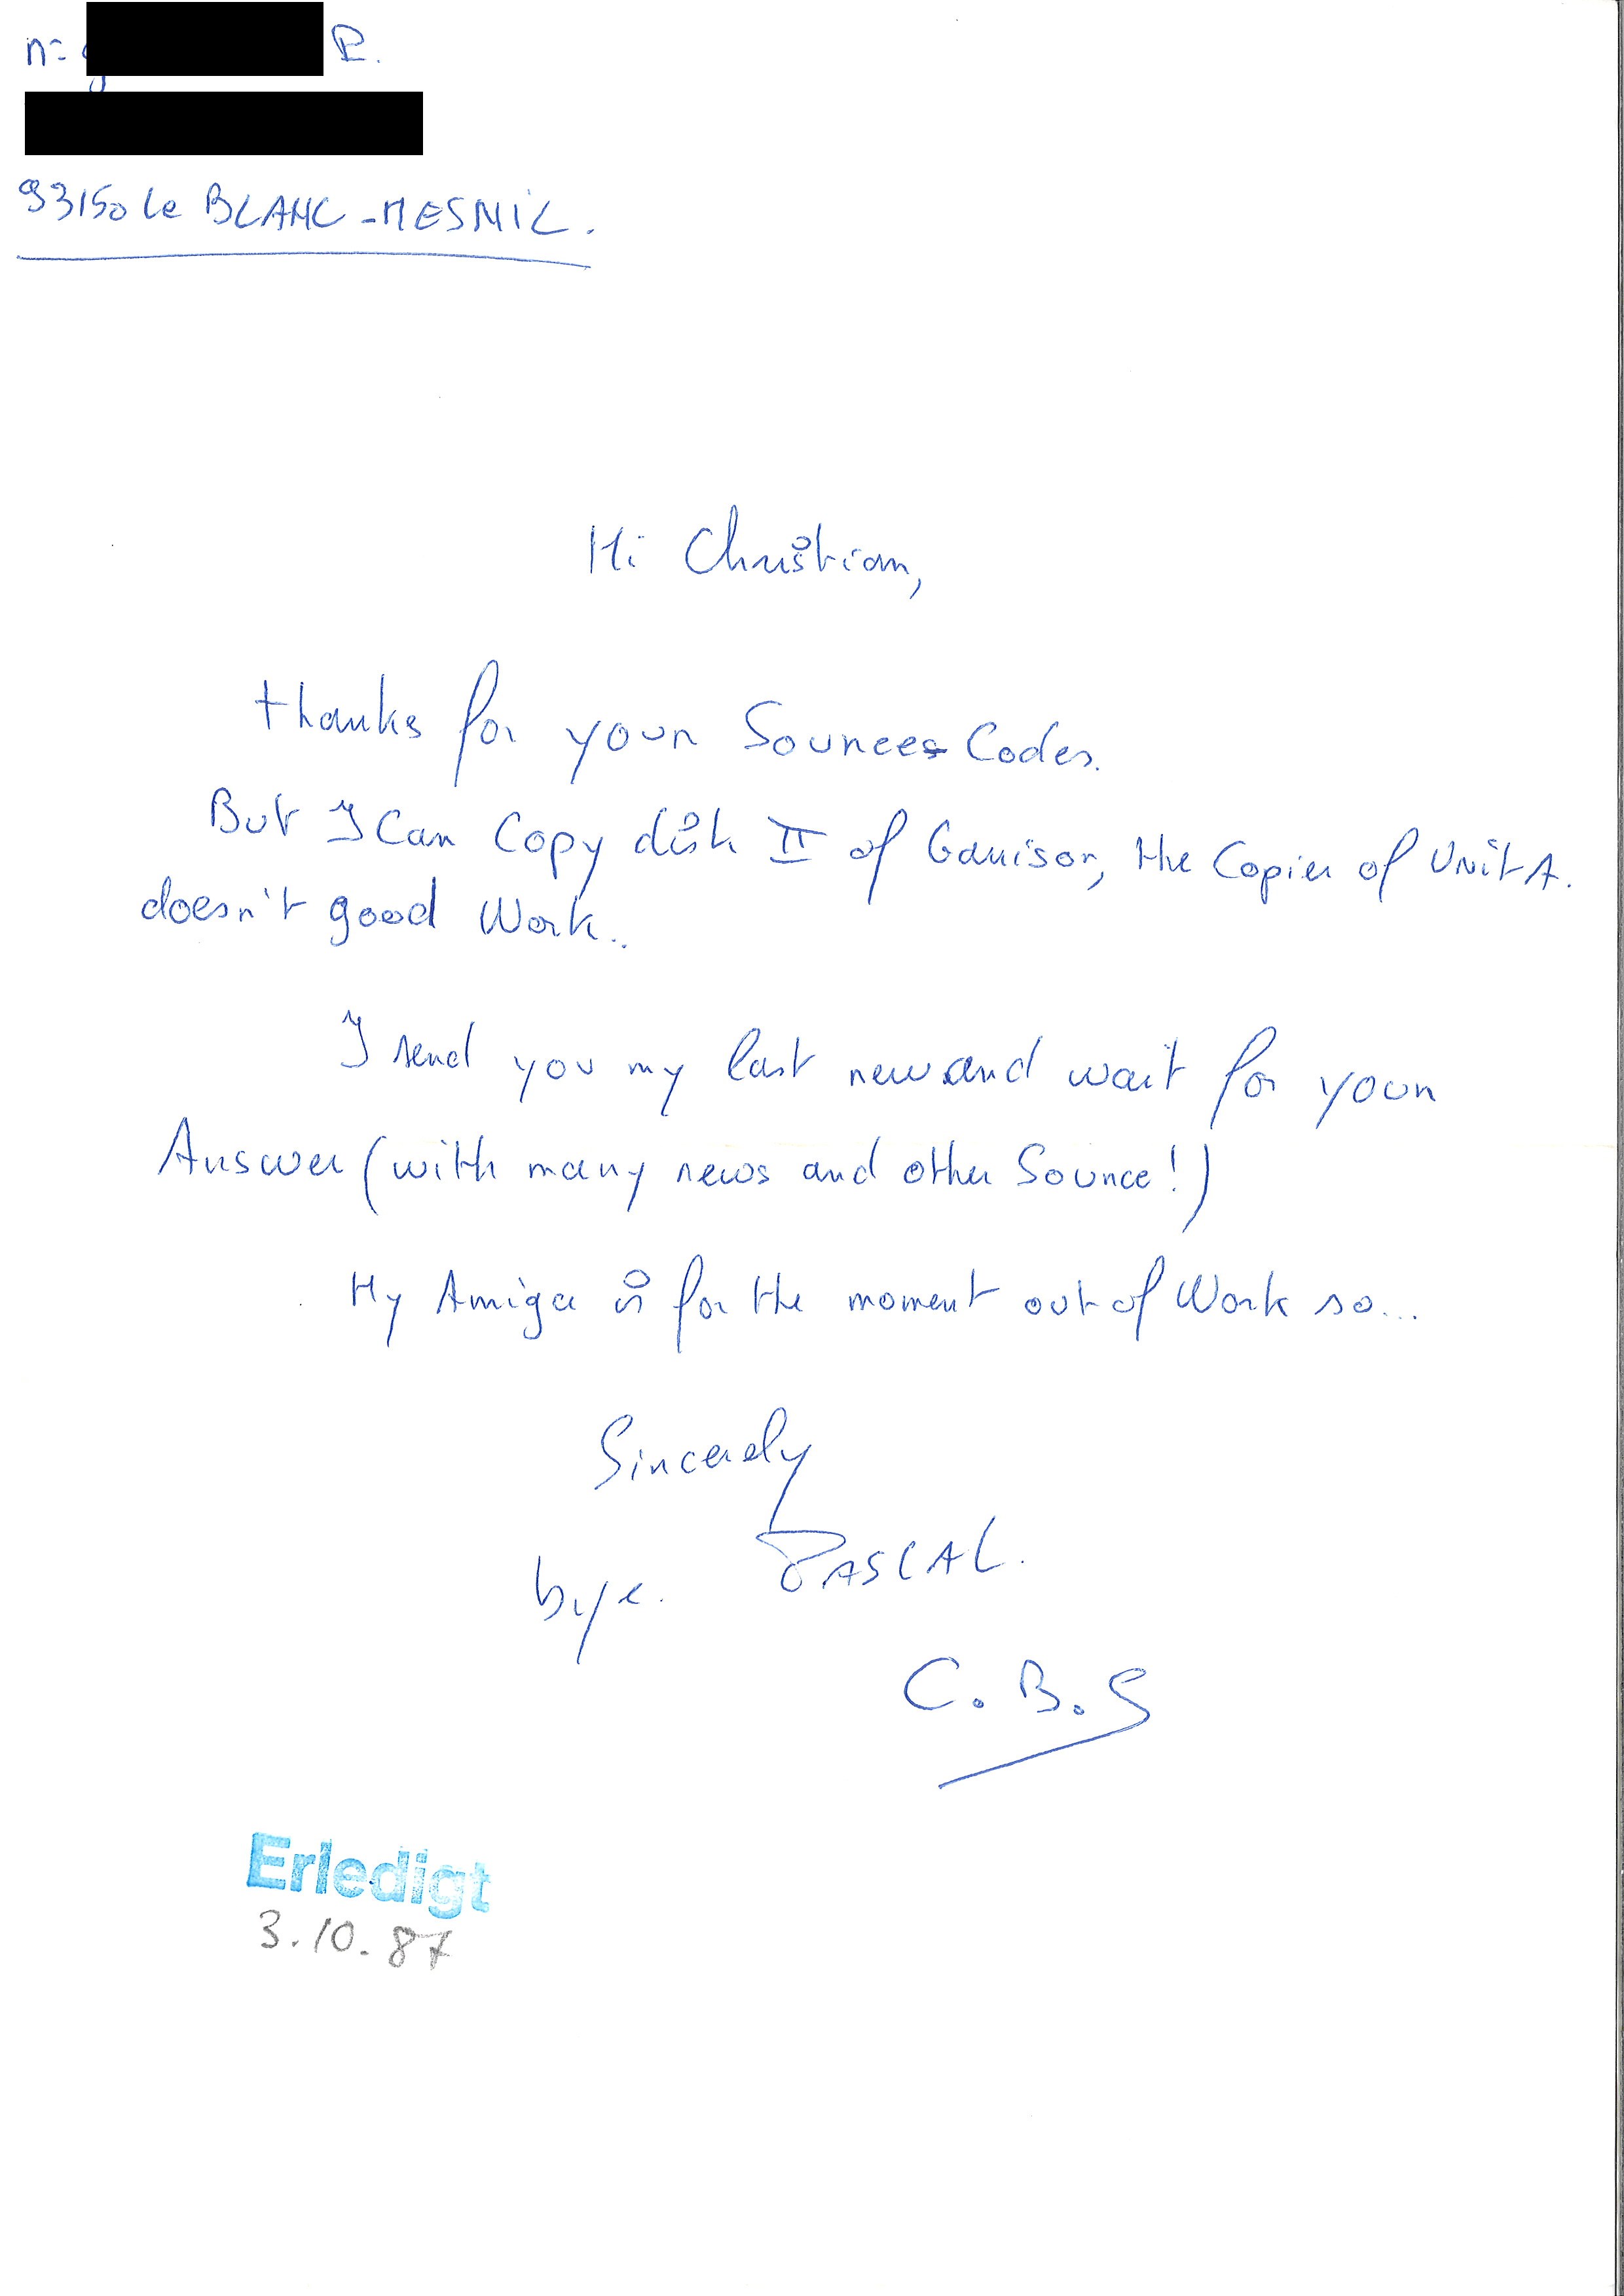 P.
93150 le BLANC-MESNIL.
Hi Christian,
thanks for your Source Codes.
But I Can Copy disk II of Garrison, the Copier of Unit A.
doesn't good Work..
I send you my last new and wait for your
Answer (with many news and other Source!)
My Amiga is for the moment out of Work so...
Sincerely
PASCAL.
bye.
C.B.S
Erledigt
3.10.87